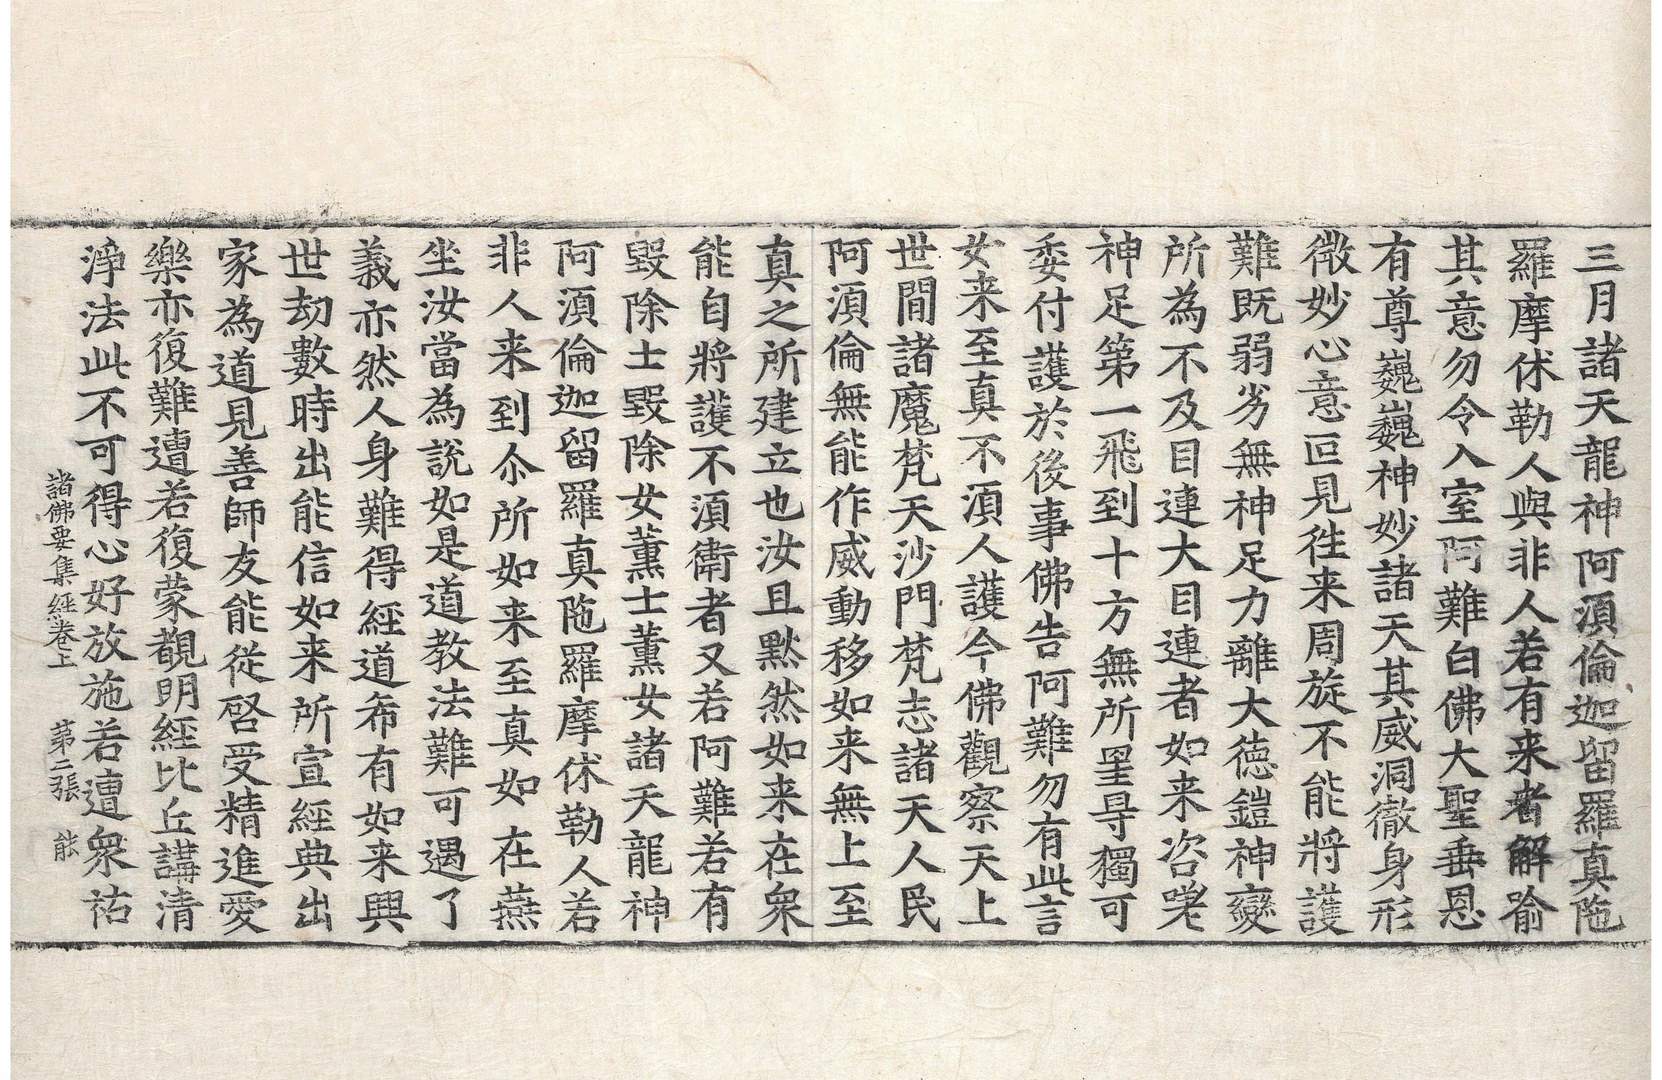 三月諸天龍神阿湏倫迦留羅真陁
羅摩休勒人與非人若有来者解喻
其意勿令入室阿難白佛大聖垂恩
有尊巍巍神妙諸天其威洞徹身形
微妙心意叵見徃来周旋不能將護
難既弱劣無神足力離大德鎧神變
所為不及目連大目連者如来咨嗟
神足第一飛到十方無所罣㝵獨可
委付護於後事佛告阿難勿有此言
女来至真不湏人護今佛觀察天上
世間諸魔梵天沙門梵志諸天人民
阿湏倫無能作威動移如来無上至
真之所建立也汝且默然如来在衆
能自將護不湏衛者又若阿難若有
毀除士毀除女薰士薰女諸天龍神
阿湏倫迦留羅真陁羅摩休勒人若
非人来到尒所如来至真如在燕
坐汝當為說如是道教法難可遇了
義亦然人身難得經道希有如来興
世劫數時出能信如来所宣經典出
家為道見善師友能從啓受精進愛
樂亦復難遭若復蒙覩明經比丘講清
淨法此不可得心好放施若遭衆祐
諸佛要集經卷上　第二張　能